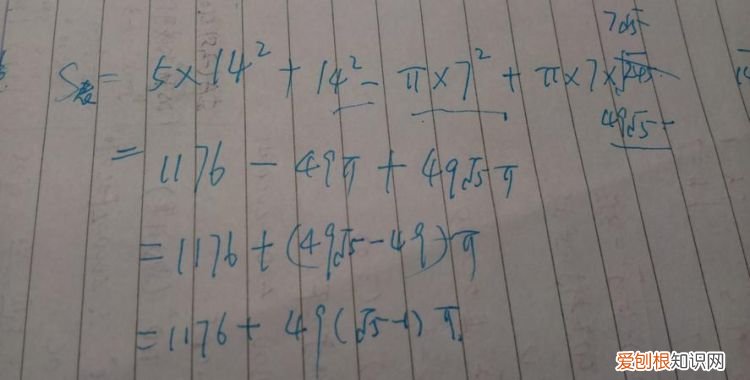 7√5
S表 = 5×14² + 14² - π×7² + π×7×√245
49√5
= 1176 - 49π + 49√5 π
= 1176 + (49√5 - 49) π
= 1176 + 49(√5 - 1) π
爱刨根知识网